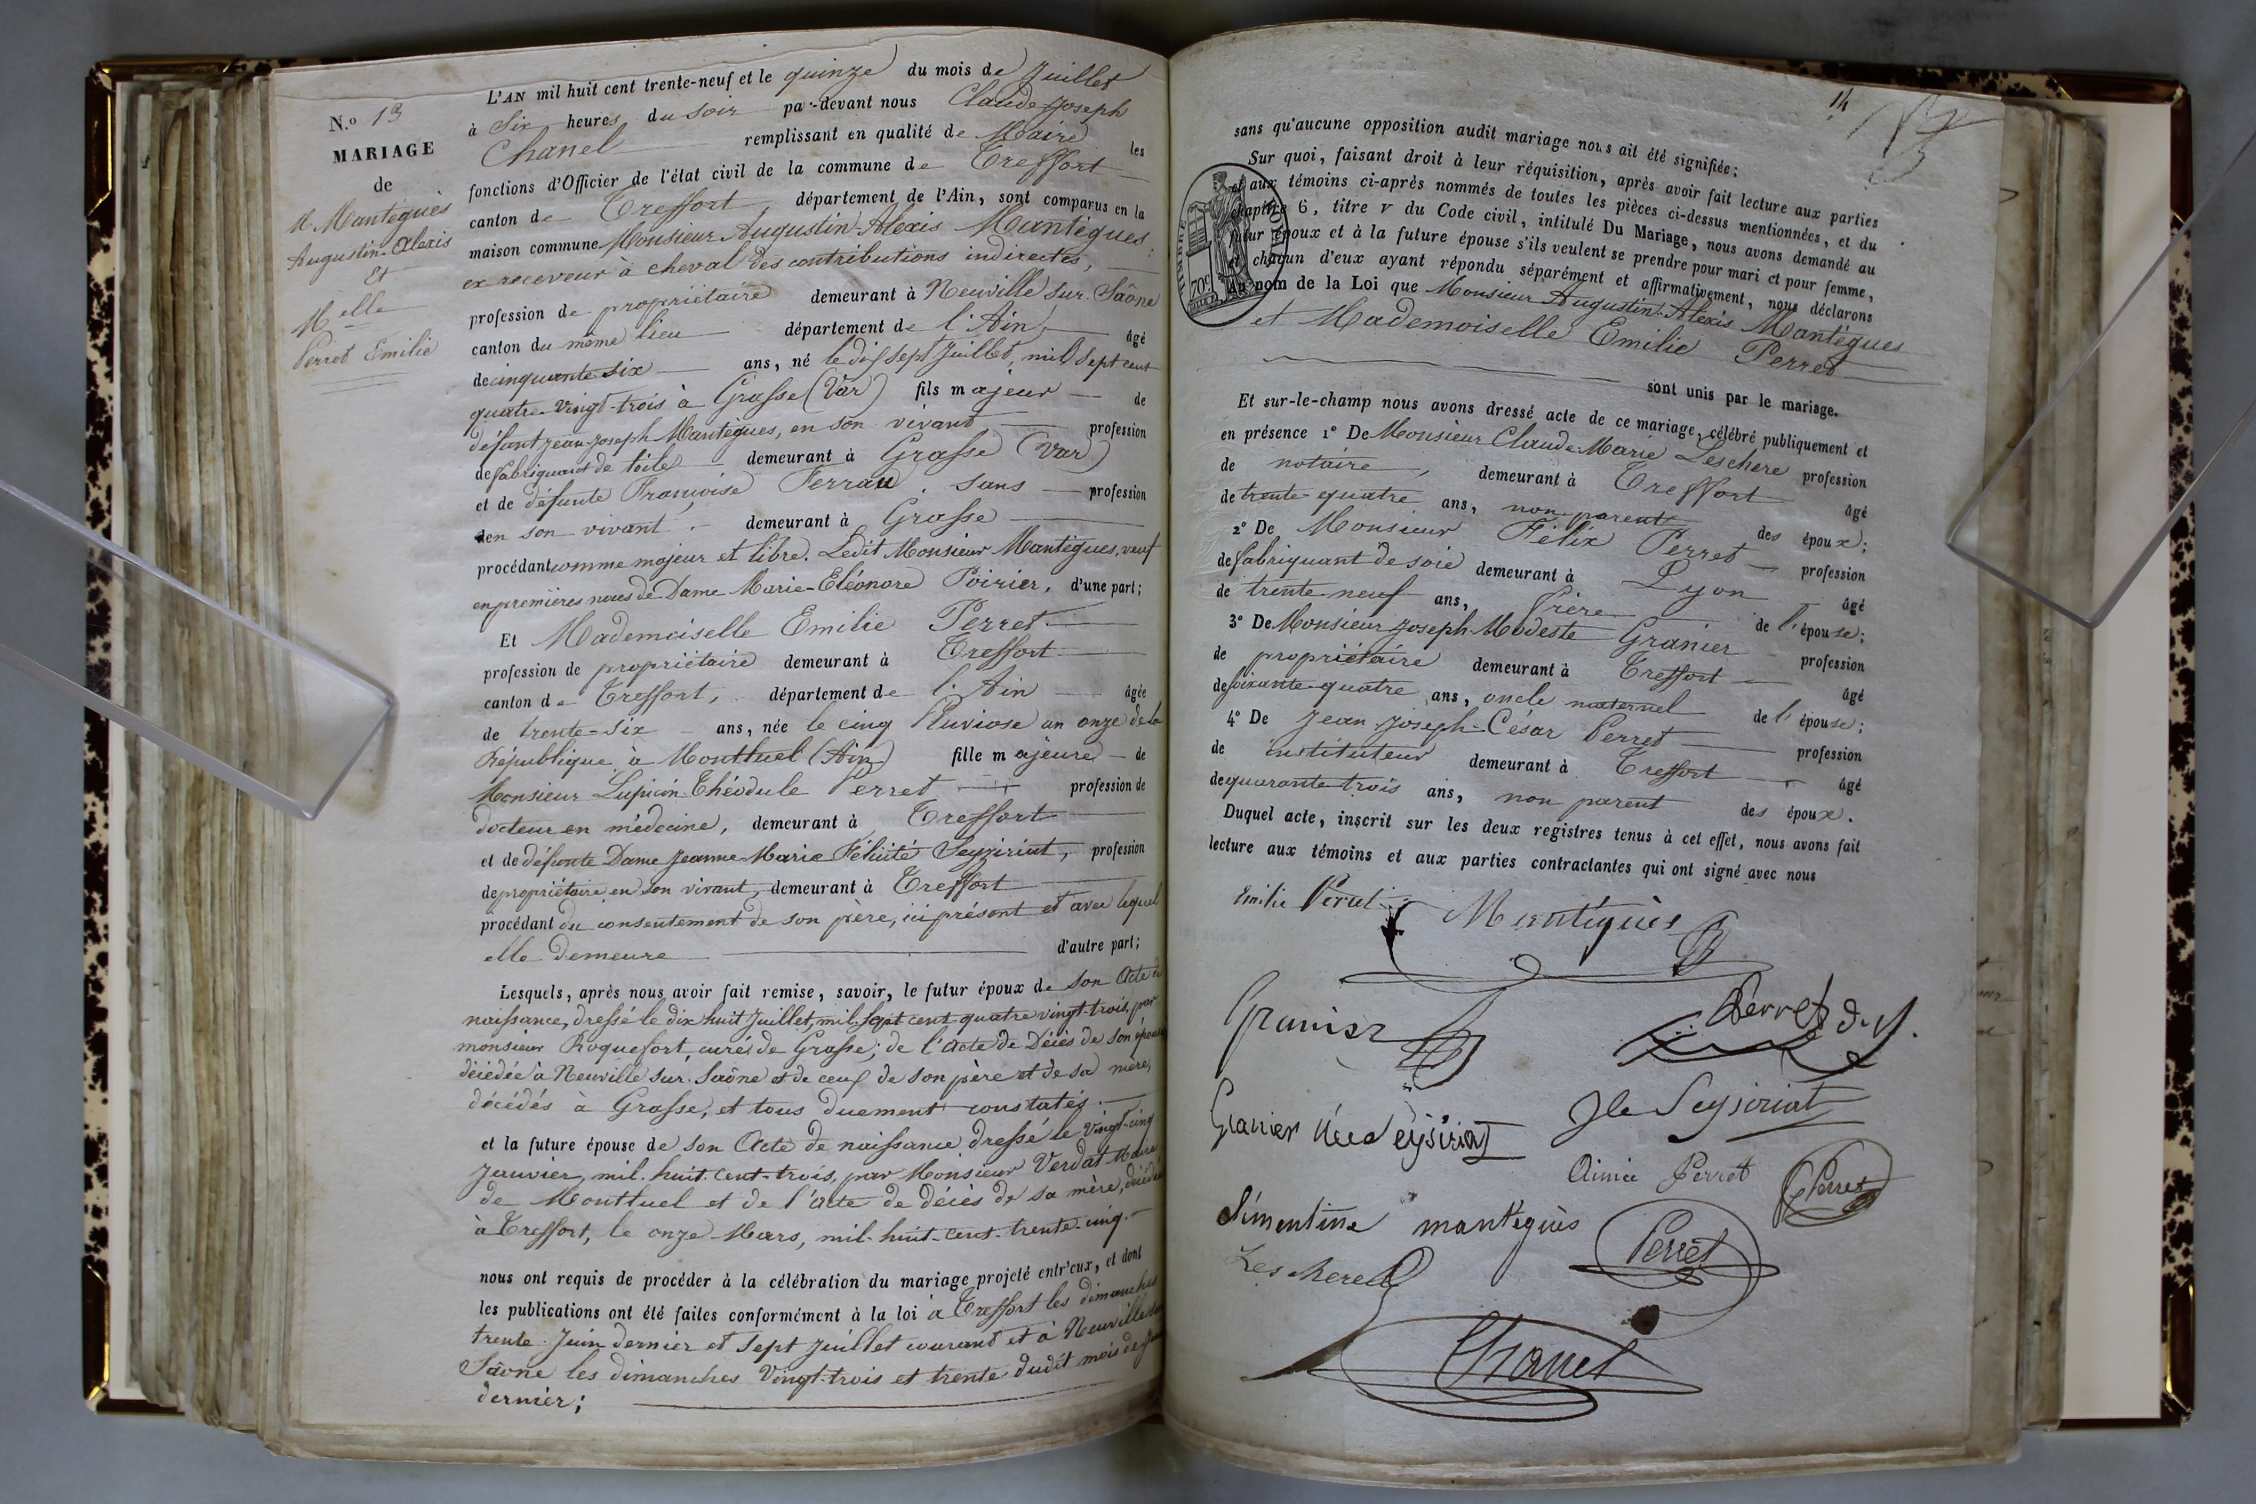 N.º 13
MARIAGE
de
Mr Mantéguès
Augustin-Alexis
Et
Melle
Perret Emilie
L'AN mil huit cent trente-neuf et le quinze du mois de Juillet
à Six heures du soir par-devant nous Claude Joseph
Chanel remplissant en qualité de Maire les
fonctions d'Officier de l'état civil de la commune de Treffort
canton de Treffort, département de l'Ain, sont comparus en la
maison commune Monsieur Augustin-Alexis Mantégues,
ex receveur à cheval des contributions indirectes,
profession de propriétaire demeurant à Neuville sur Saône
canton du même lieu département de l'Ain, âgé
de cinquante six ans, né le dix sept Juillet, mil sept cent
quatre-vingt-trois à Grasse (Var) fils majeur de
défunt Jean-Joseph Mantégues, en son vivant profession
de fabriquant de toile demeurant à Grasse (Var)
et de défunte Françoise Ferrau, sans profession
en son vivant demeurant à Grasse
procédant comme majeur et libre. Ledit Monsieur Mantégues, veuf
en premières noces de Dame Marie-Eléonore Poirier, d'une part;
Et Mademoiselle Emilie Perret
profession de propriétaire demeurant à Treffort
canton de Treffort, département de l'Ain âgée
de trente-six ans, née le cinq Pluviose an onze de la
République à Montluel (Ain) fille majeure de
Monsieur Lupicin Théodule Perret profession de
docteur en médecine, demeurant à Treffort
et de défunte Dame Jeanne Marie Félicité Seyziriat, profession
de propriétaire en son vivant, demeurant à Treffort
procédant du consentement de son père, ici présent et avec lequel
elle demeure d'autre part;
Lesquels, après nous avoir fait remise, savoir, le futur époux de son Acte de
naissance, dressé le dix huit Juillet, mil sept cent quatre vingt-trois, par
monsieur Roquefort, curé de Grasse; de l'acte de Décès de son épouse
décédée à Neuville sur Saône et de ceux de son père et de sa mère,
décédés à Grasse, et tous duement constatés.
et la future épouse de son Acte de naissance dressé le vingt-cinq
Janvier, mil-huit-cent-trois, par Monsieur Verdat Maire
de Montluel et de l'acte de décès de sa mère, décédée
à Treffort, le onze Mars, mil-huit-cent-trente-cinq.
nous ont requis de procéder à la célébration du mariage projeté entr'eux, et dont
les publications ont été faites conformément à la loi à Treffort les dimanches
trente Juin dernier et sept Juillet courant et à Neuville sur
Saône les dimanches Vingt-trois et trente dudit mois de Juin
dernier;
14
sans qu'aucune opposition audit mariage nous ait été signifiée;
Sur quoi, faisant droit à leur réquisition, après avoir fait lecture aux parties
et aux témoins ci-après nommés de toutes les pièces ci-dessus mentionnées, et du
chapitre 6, titre V du Code civil, intitulé Du Mariage, nous avons demandé au
futur époux et à la future épouse s'ils veulent se prendre pour mari et pour femme,
et chacun d'eux ayant répondu séparément et affirmativement, nous déclarons
Au nom de la Loi que Monsieur Augustin-Alexis Mantégues
et Mademoiselle Emilie Perret
sont unis par le mariage.
TIMBRE ROYAL
70c
Et sur-le-champ nous avons dressé acte de ce mariage, célébré publiquement et
en présence 1º De Monsieur Claude-Marie Leschere profession
de notaire, demeurant à Treffort âgé
de trente-quatre ans, non parent des époux;
2º De Monsieur Félix Perret profession
de fabriquant de soie demeurant à Lyon âgé
de trente-neuf ans, frère de l'épouse;
3º De Monsieur Joseph-Modeste Granier profession
de propriétaire demeurant à Treffort âgé
de soixante-quatre ans, oncle maternel de l'épouse;
4º De Jean-Joseph-César Perret profession
de instituteur demeurant à Treffort âgé
de quarante trois ans, non parent des époux.
Duquel acte, inscrit sur les deux registres tenus à cet effet, nous avons fait
lecture aux témoins et aux parties contractantes qui ont signé avec nous
Emilie Perret Mantéguès
Granier Perret d. m.
Granier née Seysiriat Jle Seysiriat
Aimée Perret Perret
Clémentine mantéguès Perret
Leschere
Chanel